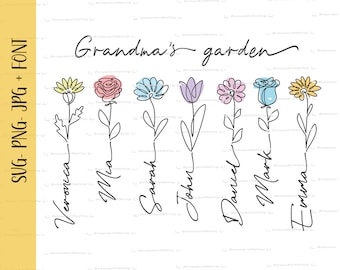 SVG- PNG- JPG + FONT
Grandma's garden
Veronica
Mia
Sarah
John
Daniel
Mark
Emma